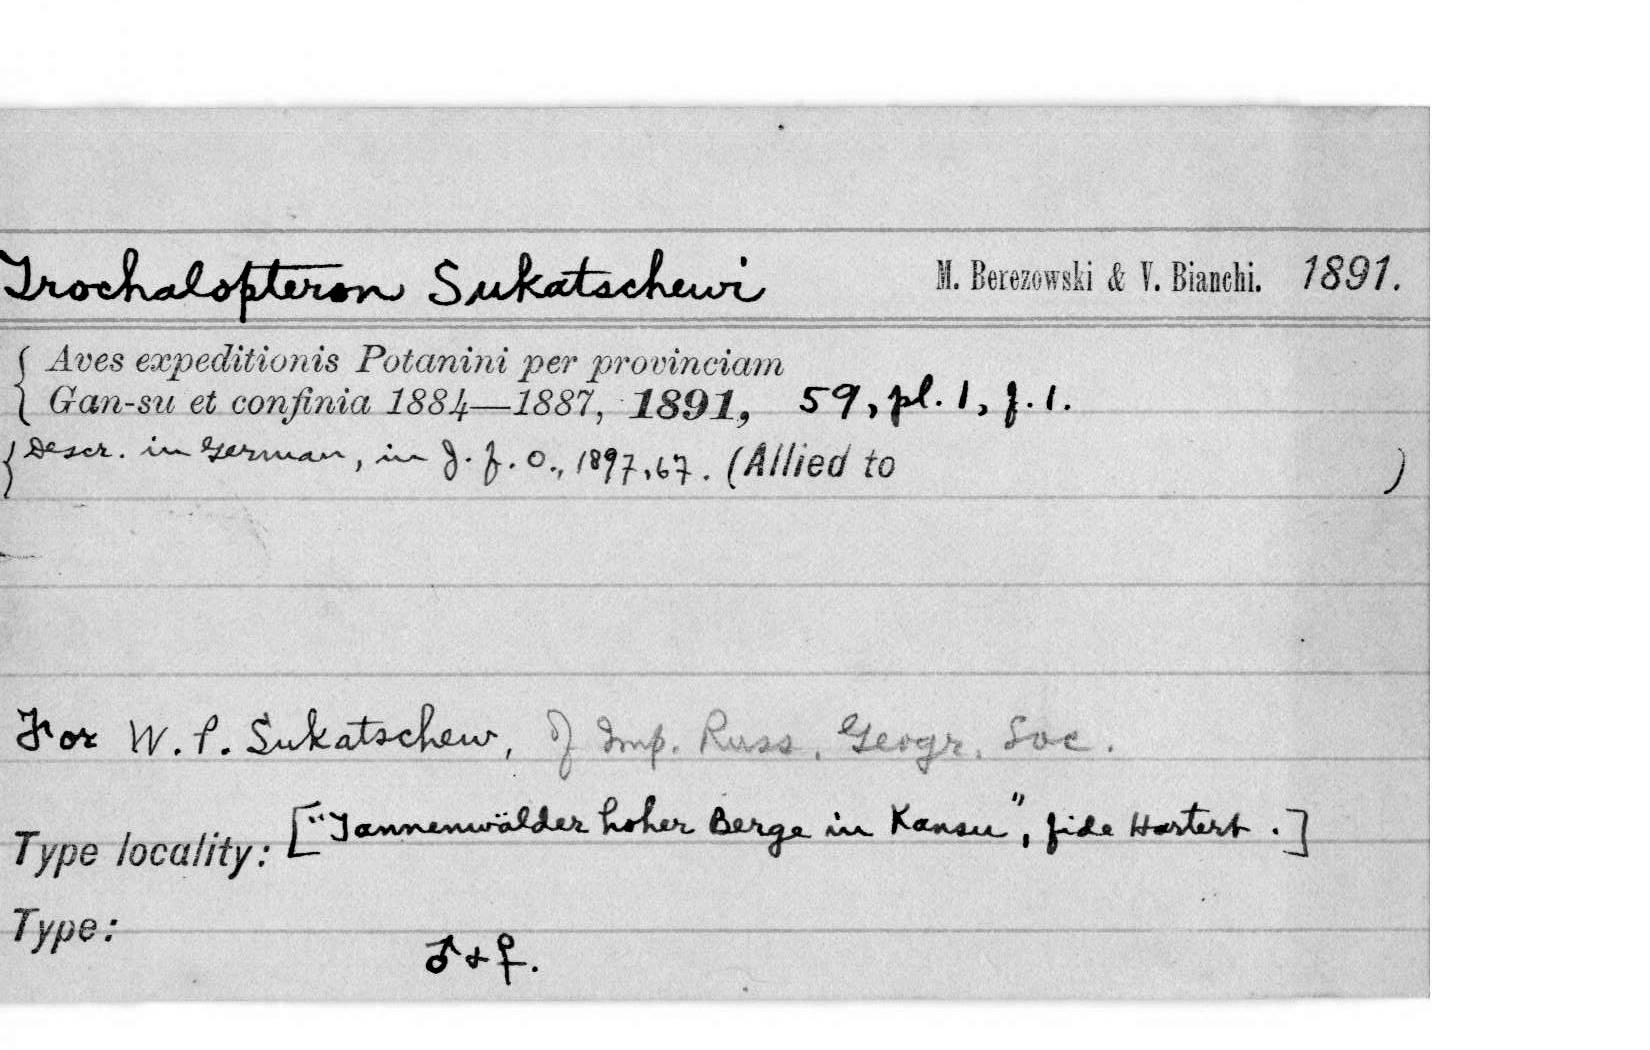 Trochalopteron Sukatschewi M. Berezowski & V. Bianchi. 1891.
{ Aves expeditionis Potanini per provinciam
Gan-su et confinia 1884—1887, 1891, 59, pl. 1, f. 1.
{ Descr. in German, in J. f. O., 1897, 67. (Allied to )
For W. P. Sukatschew, of Imp. Russ. Geogr. Soc.
Type locality: ["Tannenwälder hoher Berge in Kansu", fide Hartert.]
Type:
♂ & ♀.